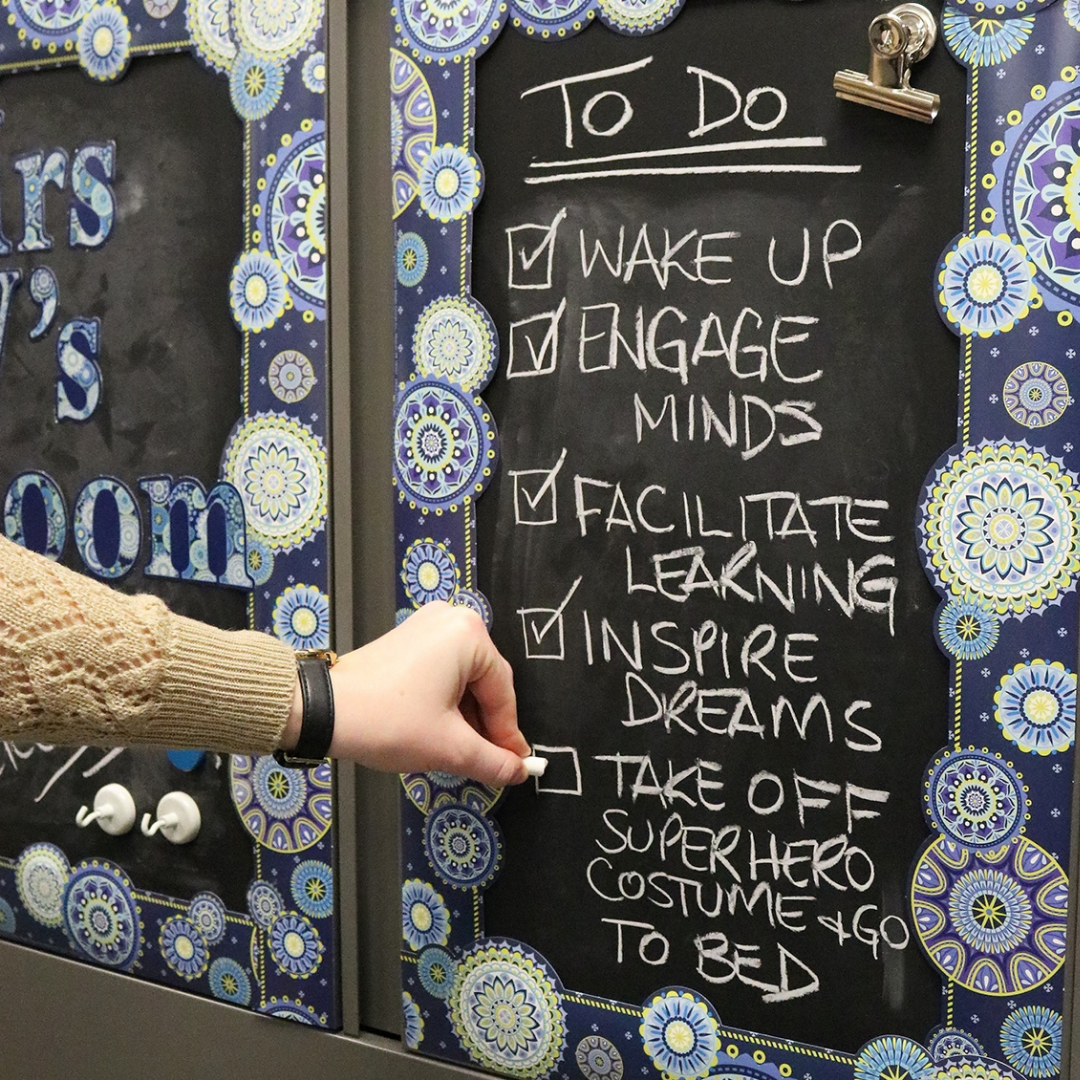 TO DO
WAKE UP
ENGAGE
MINDS
FACILITATE
LEARNING
INSPIRE
DREAMS
TAKE OFF
SUPERHERO
COSTUME & GO
TO BED